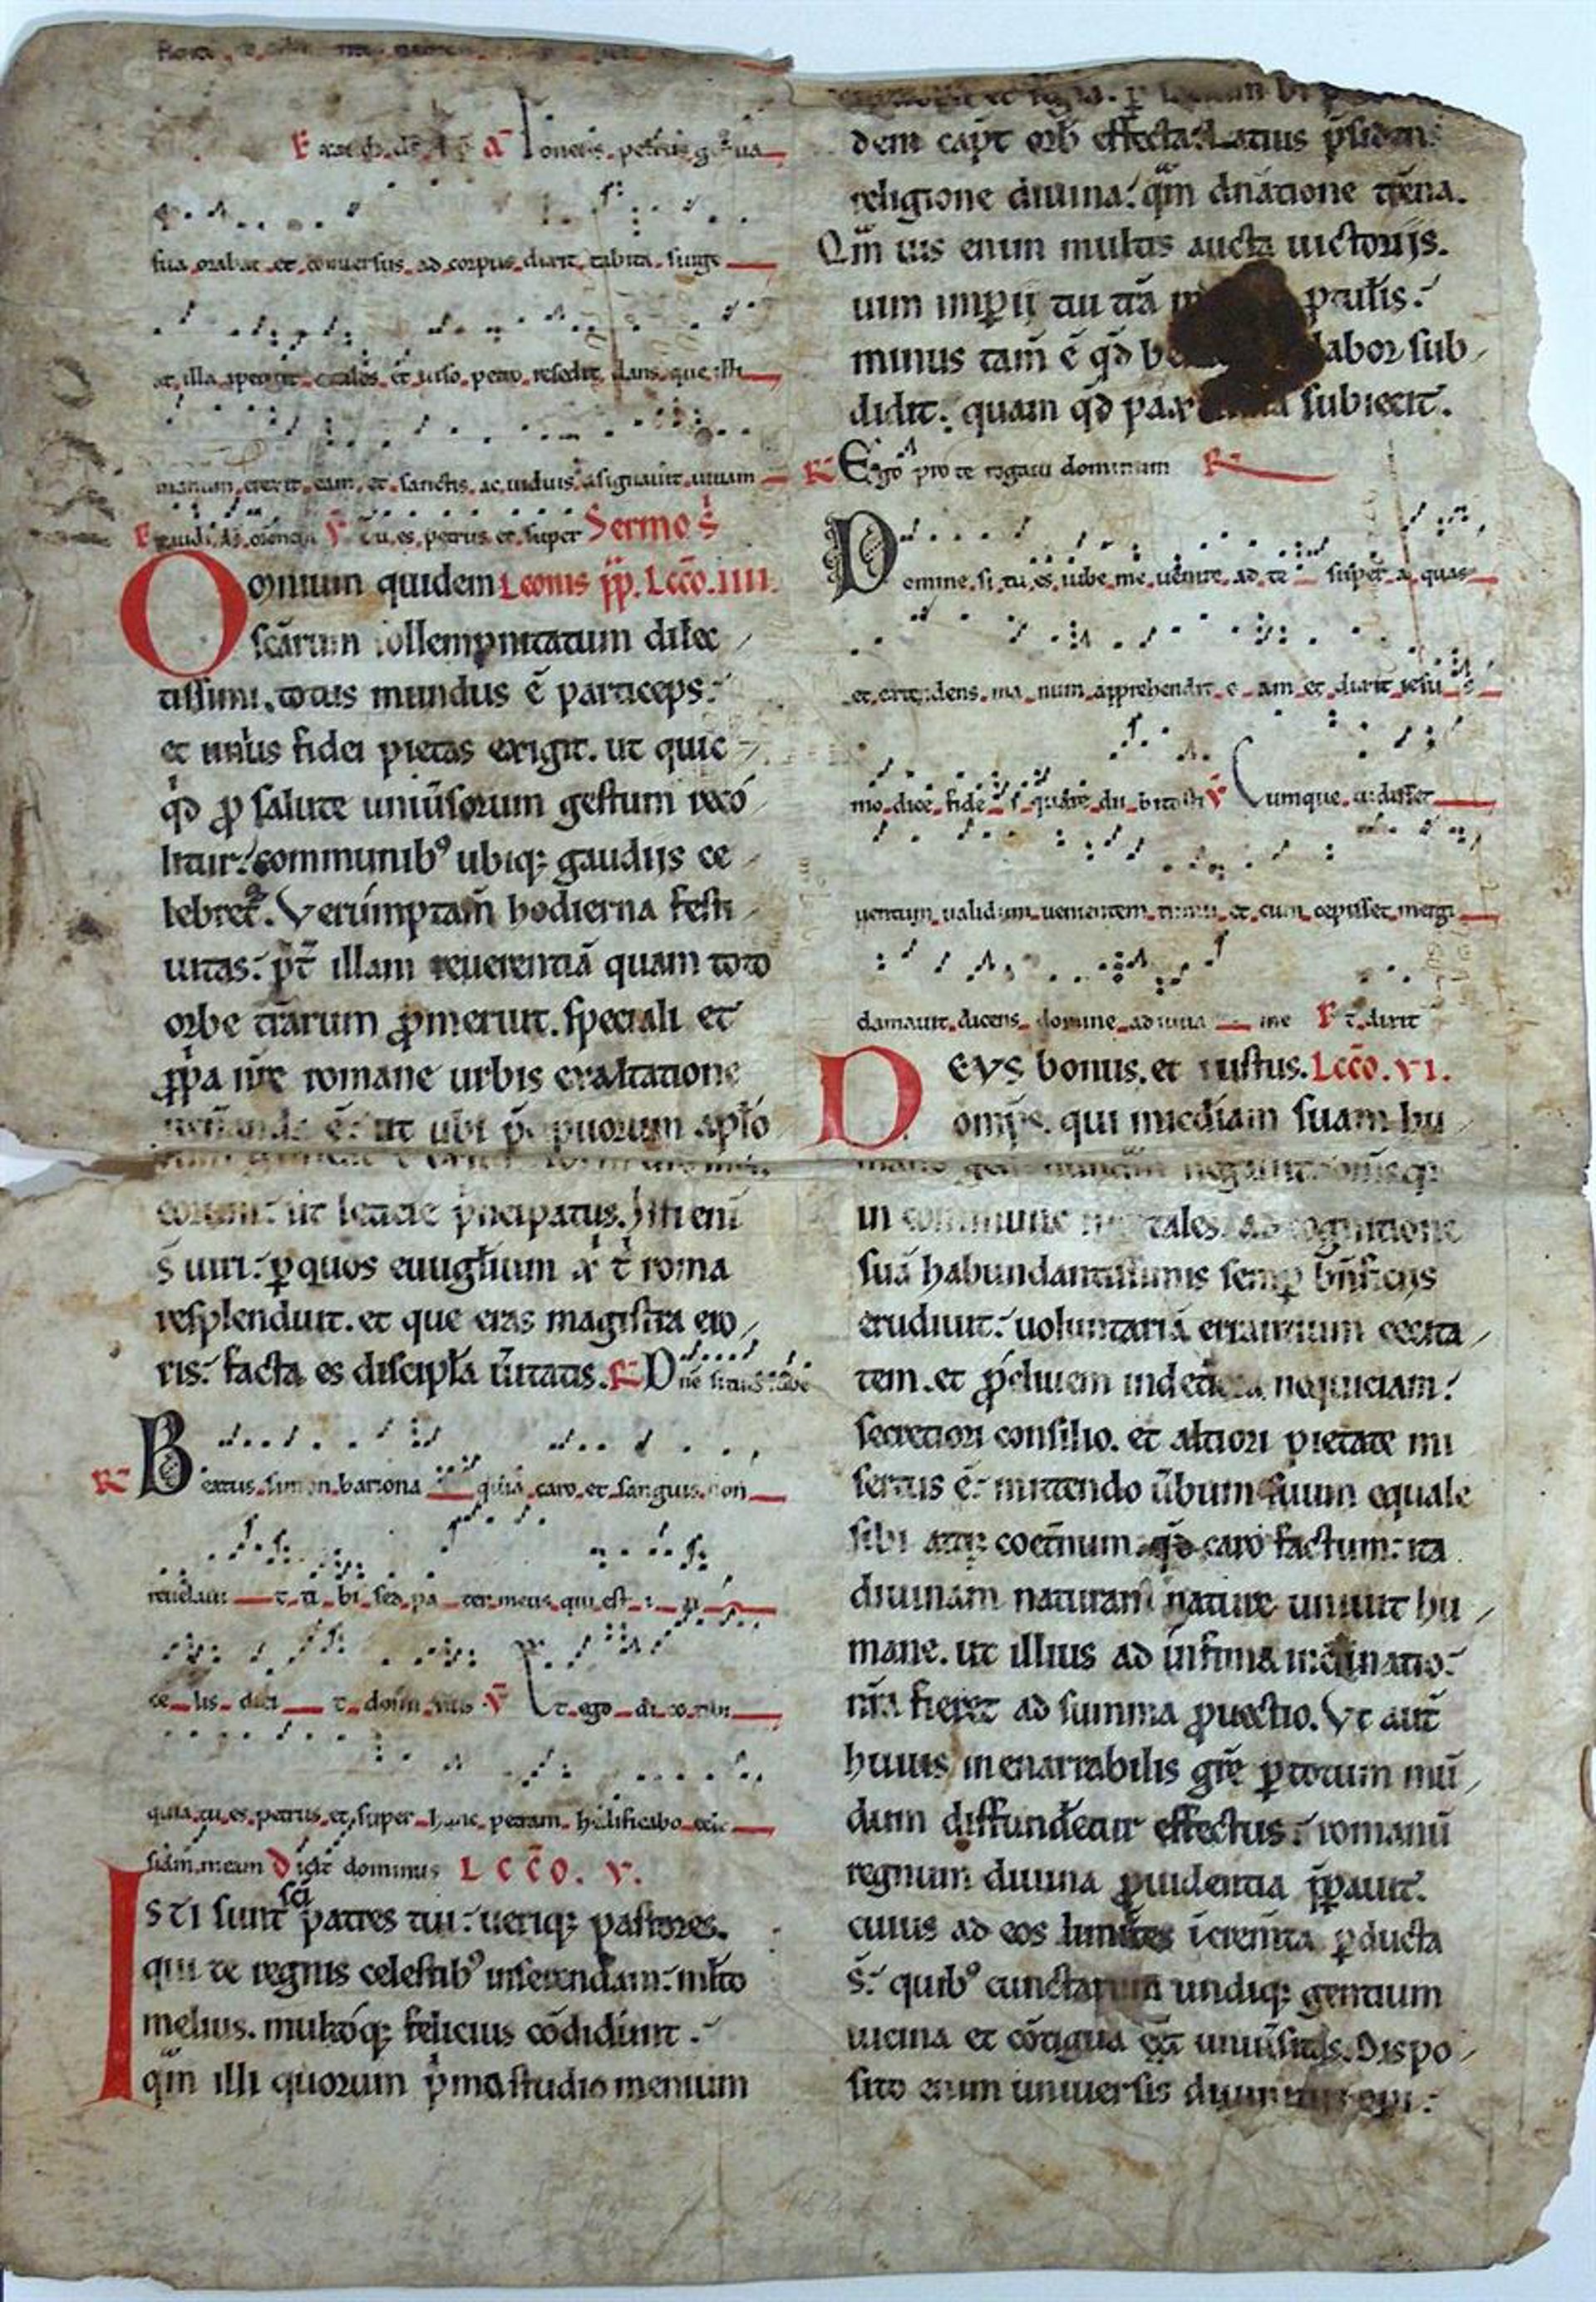 ionens. petrus genua
sua orabat et conuersus ad corpus dixit tabita surge
at illa aperuit oculos et uiso petro resedit dans que illi
manum erexit eam et sanctis ac uiduis asignauit uiuam
℣ Tu es petrus et super Sermo s̄
Omnium quidem Leonis p̄p. Lc̄c̄o. IIII.
sc̄arum sollempnitatum dilec
tissimi. totus mundus ē particeps.
et unius fidei pietas exigit. ut quic
qd̄ ꝓ salute uniūsorum gestum reco
litur. communibꝰ ubiqꝫ gaudijs ce
lebret̄. Verúmptam̄ hodierna festi
uitas. p̄t̄ illam reuerentiā quam toto
orbe tr̄arum ꝓmeruit. speciali et
ꝓp̄a nr̄e romane urbis exaltatione
ē ut ubi puorum apło

ut leticie p̄ncipatus. Isti eni
s̄ uiri. ꝑ quos euuglium x̄ t̄ roma
resplenduit. et que eras magistra erro
ris. facta es discipła ūitatis. ℟ Dn̄e si tu es iube
℟ Beatus simon bariona quia caro et sanguis non
reuelauit tibi sed pater meus qui est in
celis dicit dominus ℣ Et ego dico tibi
quia tu es petrus et super hanc petram hedificabo eccle
siam meam Dicit dominus LCC̄O. V.
ISTI sunt sc̄i patres tui. ueriqꝫ pastores.
qui te regnis celestibꝰ inserendam. mlto
melius. multoqꝫ felicius cōdidunt.
qm̄ illi quorum p̄ma studio menium

dem capt̄ orb̄ effecta. Latius p̄siden
religione diuina. qm̄ dn̄atione tr̄ena.
Qm̄ uis enim multis aucta uictorijs.
uim impij tui tr̄a ptulis.
minus tam̄ ē qd̄ be labor sub
didit. quam qd̄ pax subiecit.
℟ Ego pro te rogaui dominum ℟
Domine si tu es iube me uenire ad te super aquas
et extendens manum apprehendit eam et dixit iesus
modice fidei quare dubitasti ℣ Cumque uidisset
uentum ualidum uenientem timuit et cum cepisset mergi
clamauit dicens domine adiuua me Et dixit
DEVS bonus. et iustus. Lc̄c̄o. VI.
omp̄s. qui mic̄diam suam hu
negauit
in commune mortales ad cognitione
suā habundantissimis semꝑ bn̄ficijs
erudiuit. uoluntariā errantium cecita
tem. et ꝓcliuem in nequiciam.
secretiori consilio. et altiori pietate mi
sertus ē. mittendo ūbum suum equale
sibi atqꝫ coet̄num. qd̄ caro factum. ita
diuinam naturam nature uniuit hu
mane. ut illius ad infima inclinatio.
nr̄a fieret ad summa ꝓuectio. Ut aut̄
huius inenarrabilis gr̄e ꝑ totum mū
dum diffunderetur effectus. romanū
regnum diuina ꝓuidentia p̄parauit.
cuius ad eos limites icrem̄ta ꝑducta
s̄. quibꝰ cunctarum undiqꝫ gentium
uicina et cōtigua eēt uniūsitas. Dispo
sito enim uniuersis